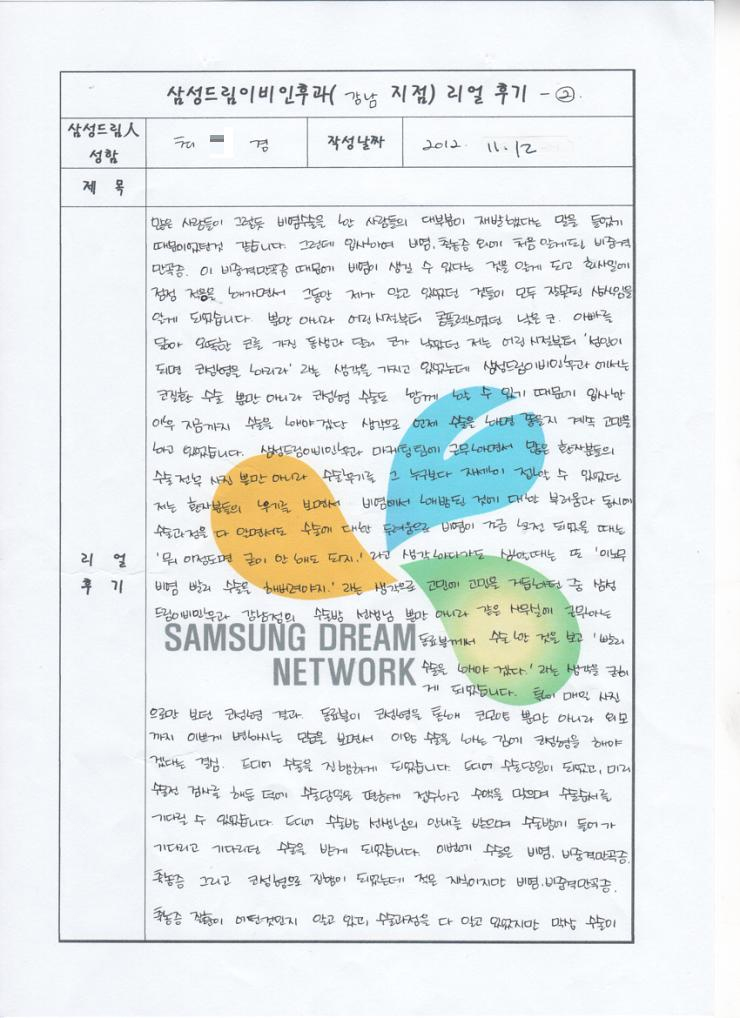 삼성드림이비인후과( 강남 지점) 리얼 후기 - ②.
삼성드림人
성함
최 경
작성날짜
2012. 11. 12
제 목
리 얼
후 기
많은 사람들이 그렇듯 비염수술을 한 사람들의 대부분이 재발했다는 말을 들었기
때문이었던것 같습니다. 그런데 입사하여 비염, 축농증 외에 처음 알게된 비중격
만곡증. 이 비중격만곡증 때문에 비염이 생길 수 있다는 것을 알게 되고 회사일에
점점 적응을 해가면서 그동안 제가 알고 있었던 것들이 모두 잘못된 상식임을
알게 되었습니다. 뿐만 아니라 어린시절부터 콤플렉스였던 낮은 코. 아빠를
닮아 오똑한 코를 가진 동생과 달리 코가 낮았던 저는 어린시절부터 '성인이
되면 코성형을 하리라' 라는 생각을 가지고 있었는데 삼성드림이비인후과에서는
코질환 수술 뿐만 아니라 코성형 수술도 함께 할 수 있기 때문에 입사한
이후 지금까지 수술을 해야겠다 생각으로 언제 수술을 하면 좋을지 계속 고민을
하고 있었습니다. 삼성드림이비인후과 마케팅팀에 근무하면서 많은 환자분들의
수술 전후 사진 뿐만 아니라 수술후기를 그 누구보다 자세히 접할 수 있었던
저는 환자분들의 후기를 보면서 비염에서 해방된 것에 대한 부러움과 동시에
수술과정을 다 알면서도 수술에 대한 두려움으로 비염이 조금 호전 되었을 때는
'뭐 이정도면 굳이 안 해도 되지.' 라고 생각하다가도 심할때는 또 '이놈의
비염 빨리 수술을 해버려야지.' 라는 생각으로 고민에 고민을 거듭하던 중 삼성
드림이비인후과 강남점의 수술방 선생님 뿐만 아니라 같은 사무실에 근무하는
동료분께서 수술한 것을 보고 '빨리
수술을 해야 겠다.' 라는 생각을 굳히
게 되었습니다. 특히 매일 사진
으로만 보던 코성형 결과. 동료분이 코성형을 통해 코모양 뿐만 아니라 외모
까지 이쁘게 변하시는 모습을 보면서 이왕 수술을 하는 김에 코성형을 해야
겠다는 결심. 드디어 수술을 진행하게 되었습니다. 드디어 수술당일이 되었고, 미리
수술전 검사를 해둔 덕에 수술당일은 편하게 접수하고 수액을 맞으며 수술순서를
기다릴 수 있었습니다. 드디어 수술방 선생님의 안내를 받으며 수술방에 들어가
기다리고 기다리던 수술을 받게 되었습니다. 이번에 수술은 비염, 비중격만곡증,
축농증 그리고 코성형으로 진행이 되었는데 적은 지식이지만 비염.비중격만곡증.
축농증 질환이 어떤것인지 알고 있고, 수술과정을 다 알고 있었지만 막상 수술이
SAMSUNG DREAM
NETWORK